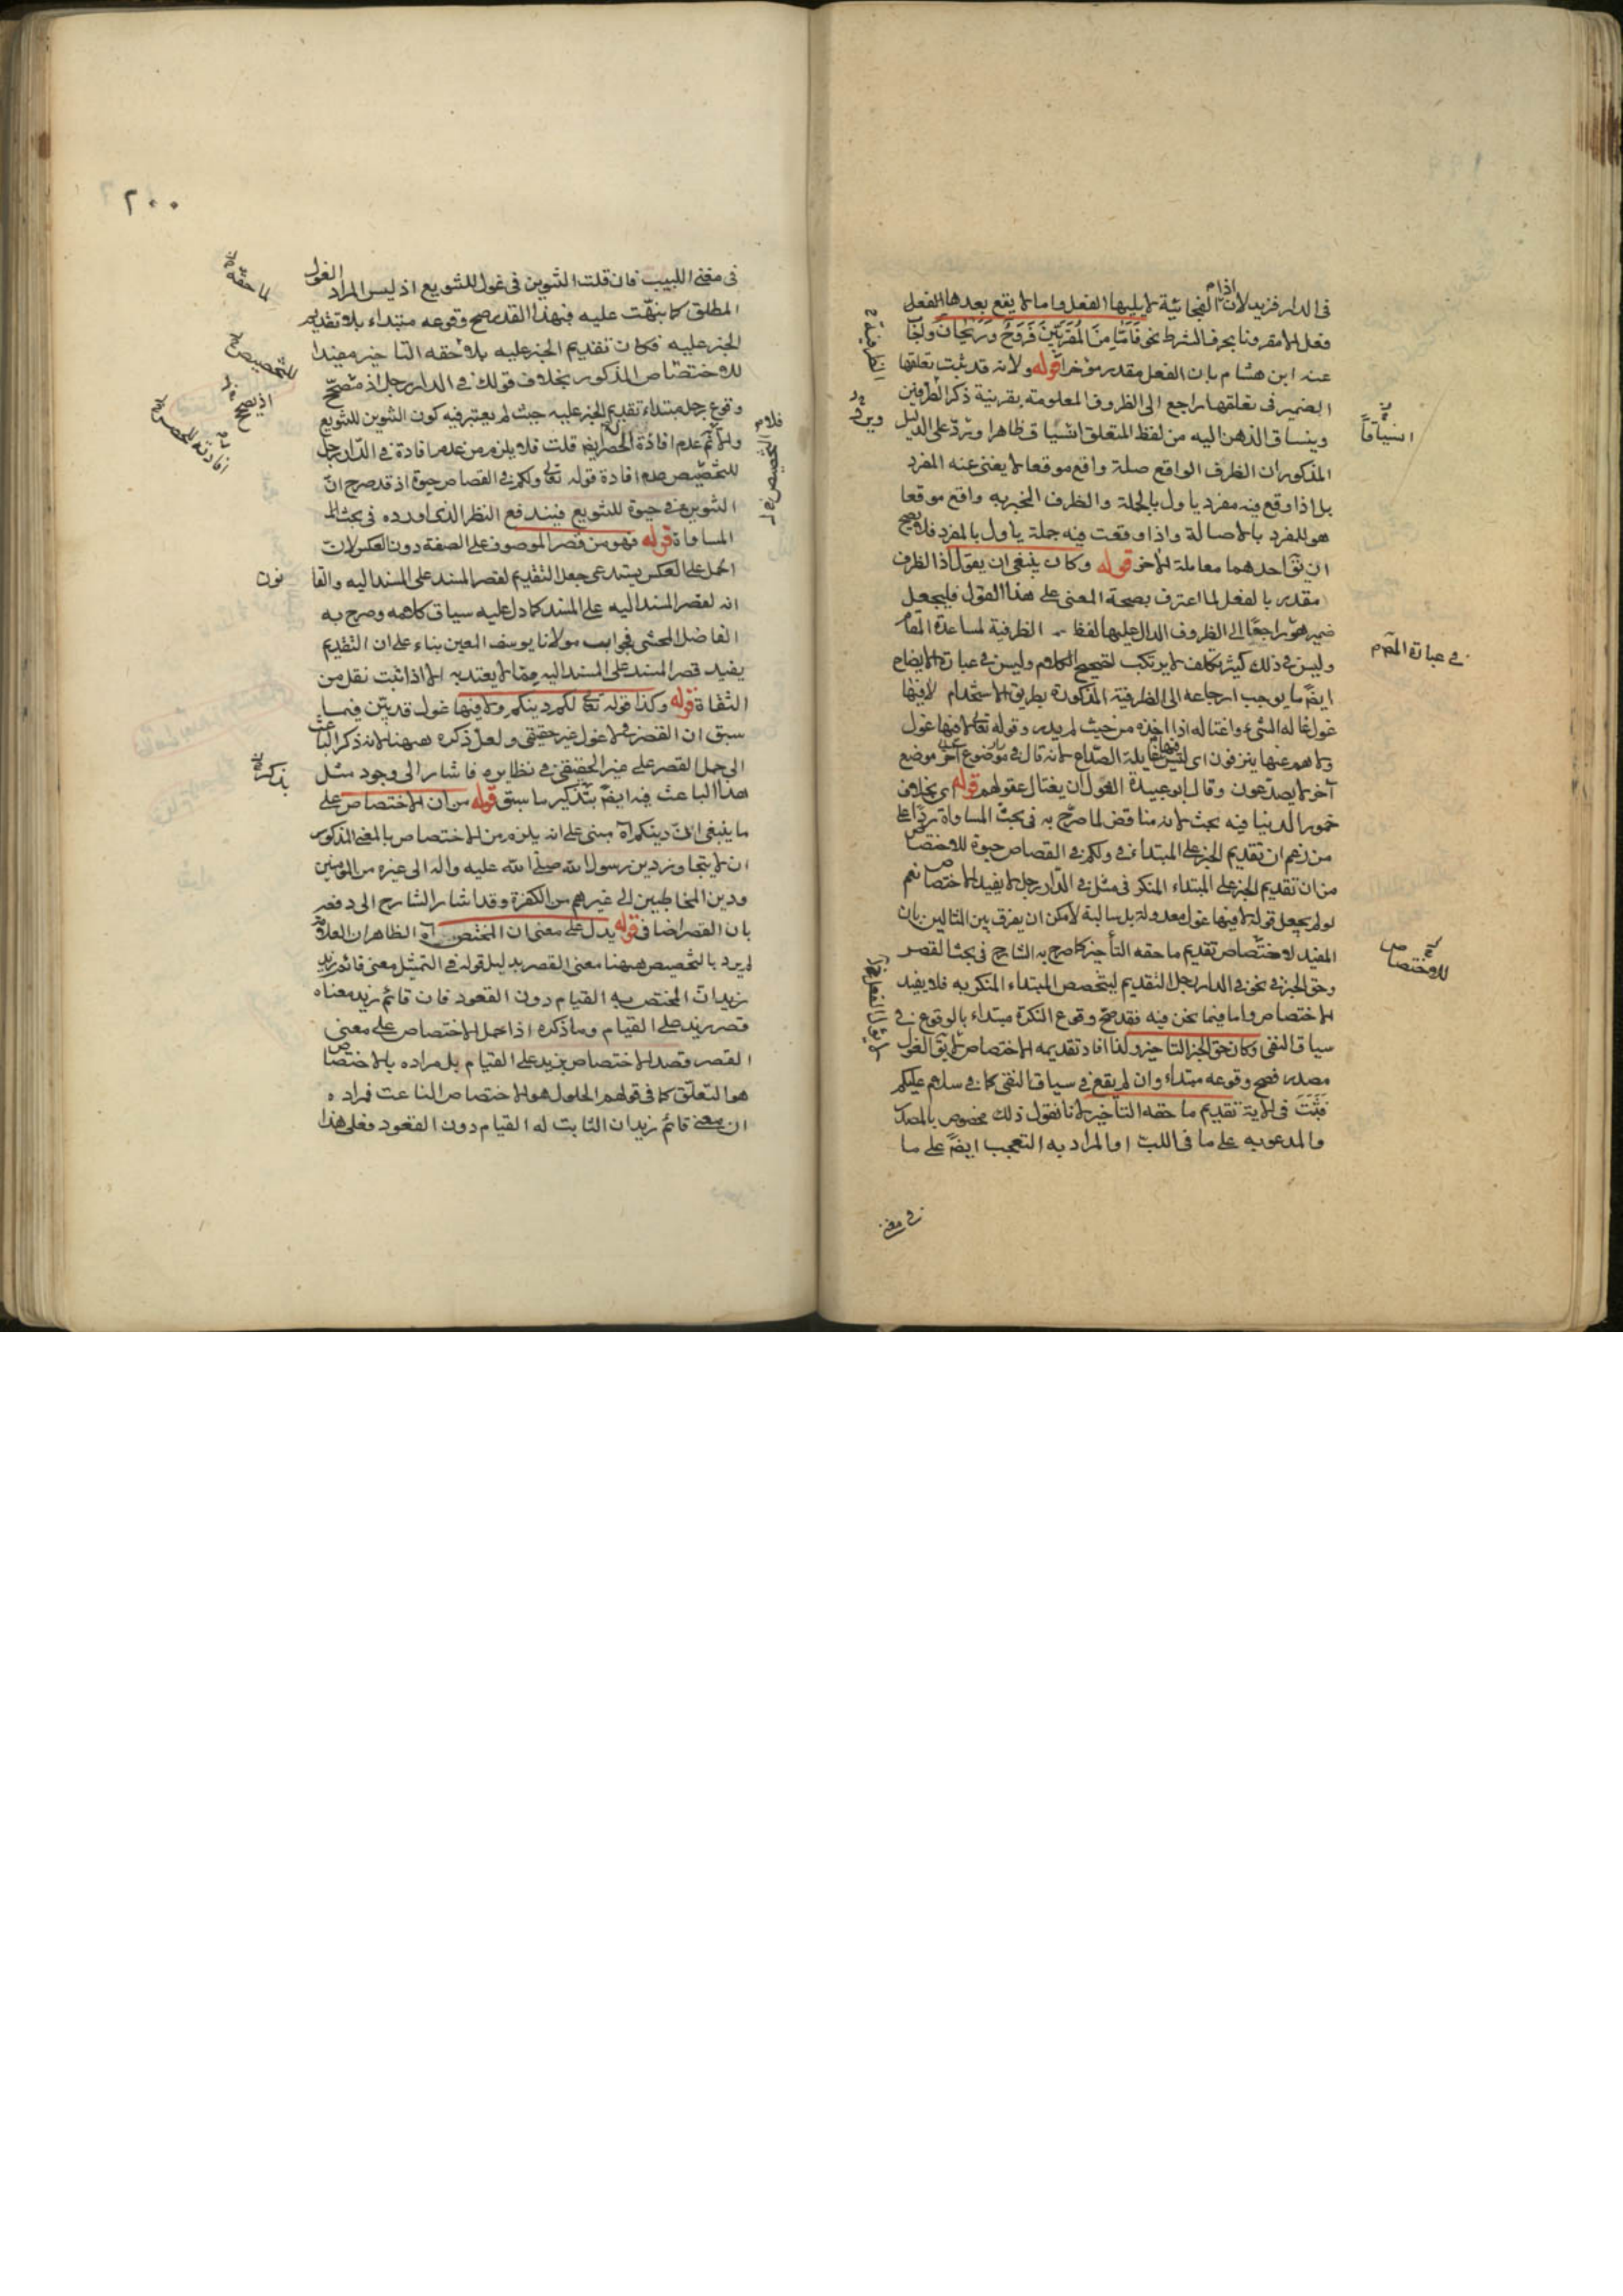 فى الدار فزيد لان اذا الفجائية لا يليها الفعل واما ما لا يقع بعدها الفعل
فعل الا مقرونا بحرف الشرط نحو فاما من المقربين فروح وريحان واجاب
عنه ابن هشام بان الفعل مقدر مؤخرا قوله ولانه قد يثبت تعلقها
الضمير فى تعلقها راجع الى الظروف المعلومة بقرينة ذكر الظرفين
وينساق الذهن اليه من لفظ المتعلق انسياقا ظاهرا ويرد على الدليل
المذكور ان الظرف الواقع صلة واقع موقعا لا يغنى عنه المفرد
بل اذا وقع فيه مفرد ياول بالجملة والظرف المخبر به واقع موقعا
هو للمفرد بالاصالة واذا وقعت فيه جملة ياول بالمفرد فلا يصح
ان احدهما معاملة الاخر قوله وكان ينبغى ان يقول اذ الظرف
مقدر بالفعل لما اعترف بصحة المعنى على هذا القول فليجعل
ضمير هو راجعا الى الظروف الدال عليها لفظ الظرفية لمساعدة المقام
وليس فى ذلك كثير تكلف لا يرتكب لتصحيح الكلام وليس فى عبارة الايضاح
ايضا ما يوجب ارجاعه الى الظرفية المذكورة بطريق الاستخدام لا فيها
غول غاله الشىء واغتاله اذا اخذه من حيث لم يدر وقوله تعالى لا فيها غول
ولا هم عنها ينزفون اى ليس فيها غايلة الصداع لانه قال فى موضع
آخر لا يصدعون وقال ابو عبيدة الغول ان يغتال عقولهم قوله اى بخلاف
خمور الدنيا فيه بحث لانه مناقض لما صرح به فى بحث المساواة ردا على
من زعم ان تقديم الخبر على المبتداء فى ولكم فى القصاص حيوة للاختصاص
من ان تقديم الخبر على المبتداء المنكر فى مثل فى الدار رجل لا يفيد الاختصاص نعم
لو لم يجعل قوله لا فيها غول معدولة بل سالبة لامكن ان يفرق بين المثالين بان
المفيد للاختصاص تقديم ما حقه التأخير كما صرح به الشارح فى بحث القصر
وحق الخبر فى نحو فى الدار رجل التقديم ليتخصص المبتداء المنكر به فلا يفيد
الاختصاص واما فيما نحن فيه فقد صح وقوع النكرة مبتداء بالوقوع فى
سياق النفى وكان حق الخبر التاخير ولذا افاد تقديمه الاختصاص لا يق الغول
مصدر فصح وقوعه مبتداء وان لم يقع فى سياق النفى كما فى سلام عليكم
فثبت فى الاية تقديم ما حقه التاخير لانا نقول ذلك مخصوص بالمصدر
والمدعو به على ما فى اللب او المراد به التعجب ايضا على ما
فى مغنى
انسياقا
فى عبارة
للاختصاص
٢٠٠
فى مغنى اللبيب فان قلت التنوين فى غول للتنويع اذ ليس المراد الغول
المطلق كما نبهت عليه فبهذا القدر صح وقوعه مبتداء بلا تقديم
الخبر عليه فكان تقديم الخبر عليه بلا حقه التاخير مفيدا
للاختصاص المذكور بخلاف قولك فى الدار رجل اذ مصحح
وقوع رجل مبتداء تقديم الخبر عليه حيث لم يعتبر فيه كون التنوين للتنويع
والا تم عدم افادة الحصر ايضا قلت فلا يلزم من عدم افادة فى الدار رجل
للتخصيص عدم افادة قوله تعالى ولكم فى القصاص حيوة اذ قد صرح ان
التنوين فى حيوة للتنويع فيندفع النظر الذى اورده فى بحث
المساواة قوله فهو من قصر الموصوف على الصفة دون العكس لان
الحمل على العكس يستدعى جعل التقديم لقصر المسند على المسند اليه والقانون
انه لقصر المسند اليه على المسند كما دل عليه سياق كلامه وصرح به
الفاضل المحشى فجواب مولانا يوسف المعين بناء على ان التقديم
يفيد قصر المسند على المسند اليه مما لا يعتد به الا اذا ثبت نقل من
الثقاة قوله وكذا قوله تعالى لكم دينكم ولا فيها غول قد بين فيما
سبق ان القصر فى لا غول غير حقيقى ولعل ذكره ههنا لانه ذكر الباعث
الى حمل القصر على غير الحقيقى فى نظايره فاشار الى وجود مثل
هذا الباعث فيه ايضا بتذكير ما سبق قوله من ان الاختصاص على
ما ينبغى ان دينكم اه مبنى على انه يلزم من الاختصاص بالمعنى المذكور
ان لا يتجاوز دين رسول الله صلى الله عليه واله الى غيره من المؤمنين
ودين المخاطبين الى غيرهم من الكفرة وقد اشار الشارح الى دفعه
بان القصر اضافى قوله يدل على معنى ان المختص اه الظاهر ان العلامة
لم يرد بالتخصيص ههنا معنى القصر بدليل قوله فى التمثيل معنى قائم زيد
زيد ان المختص به القيام دون القعود فان قائم زيد معناه
قصر زيد على القيام وما ذكره اذا حمل الاختصاص على معنى
القصر وقصد الاختصاص بزيد على القيام بل مراده بالاختصاص
هو التعلق كما فى قولهم الحلول هو الاختصاص الناعت فمراده
ان معنى قائم زيد ان الثابت له القيام دون القعود فعلى هذا
ما حقه
للتخصيص
اذ يصح
بذكر